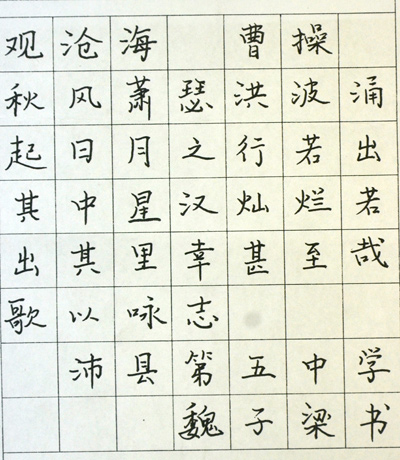 观沧海 曹操
秋风萧瑟洪波涌
起日月之行若出
其中星汉灿烂若
出其里幸甚至哉
歌以咏志
沛县第五中学
魏子梁书